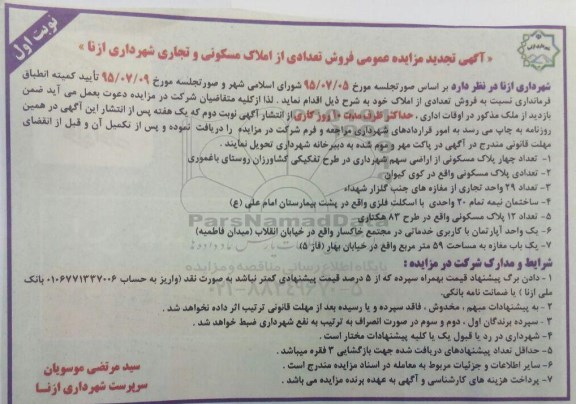 نوبت اول
« آگهی تجدید مزایده عمومی فروش تعدادی از املاک مسکونی و تجاری شهرداری ازنا »
شهرداری ازنا در نظر دارد بر اساس صورتجلسه مورخ ۹۵/۰۷/۰۵ شورای اسلامی شهر و صورتجلسه مورخ ۹۵/۰۷/۰۹ تأیید کمیته انطباق
فرمانداری نسبت به فروش تعدادی از املاک خود به شرح ذیل اقدام نماید . لذا ازکلیه متقاضیان شرکت در مزایده دعوت بعمل می آید ضمن
بازدید از ملک مذکور در اوقات اداری ، حداکثر ظرف مدت ۱۰ روز کاری از انتشار آگهی نوبت دوم که یک هفته پس از انتشار این آگهی در همین
روزنامه به چاپ می رسد به امور قراردادهای شهرداری مراجعه و فرم شرکت در مزایده را دریافت نموده و پس از تکمیل آن و قبل از انقضای
مهلت قانونی مندرج در آگهی در پاکت مهر و موم شده به دبیرخانه شهرداری تحویل نمایند .
۱- تعداد چهار پلاک مسکونی از اراضی سهم شهرداری در طرح تفکیکی کشاورزان روستای باغموری
۲- تعدادی پلاک مسکونی واقع در کوی کیوان
۳- تعداد ۲۹ واحد تجاری از مغازه های جنب گلزار شهداء
۴- ساختمان نیمه تمام ۲۰ واحدی با اسکلت فلزی واقع در پشت بیمارستان امام علی (ع)
۵- تعداد ۱۲ پلاک مسکونی واقع در طرح ۸۳ هکتاری
۶- یک واحد آپارتمان با کاربری خدماتی در مجتمع خاکسار واقع در خیابان انقلاب (میدان فاطمیه)
۷- یک باب مغازه به مساحت ۵۹ متر مربع واقع در خیابان بهار (فاز ۵).
شرایط و مدارک شرکت در مزایده :
۱- دادن برگ پیشنهاد قیمت بهمراه سپرده که از ۵ درصد قیمت پیشنهادی کمتر نباشد به صورت نقد (واریز به حساب ۰۱۰۶۷۷۱۳۳۷۰۰۶ بانک
ملی ازنا ) یا ضمانت نامه بانکی.
۲- به پیشنهادات مبهم ، مخدوش ، فاقد سپرده و یا رسیده بعد از مهلت قانونی ترتیب اثر داده نخواهد شد .
۳- سپرده برندگان اول ، دوم و سوم در صورت انصراف به ترتیب به نفع شهرداری ضبط خواهد شد .
۴- شهرداری در رد یا قبول یک یا کلیه پیشنهادات مختار است .
۵- حداقل تعداد پیشنهادهای دریافت شده جهت بازگشایی ۳ فقره میباشد .
۶- سایر اطلاعات و جزئیات مربوط به معامله در اسناد مزایده مندرج است .
۷- پرداخت هزینه های کارشناسی و آگهی به عهده برنده مزایده می باشد .
سید مرتضی موسویان
سرپرست شهرداری ازنـا
ParsNamadData
پایگاه اطلاع رسانی مناقصه و مزایده